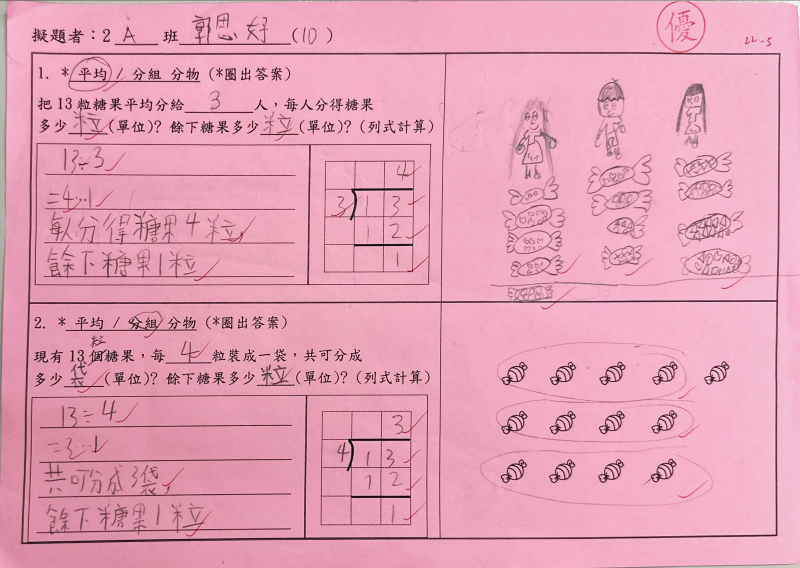 擬題者：2 A 班 郭思妤 (10)
優
22-5
1. * 平均 / 分組 分物 (*圈出答案)
把 13 粒糖果平均分給 3 人，每人分得糖果
多少 粒 (單位)? 餘下糖果多少 粒 (單位)? (列式計算)
13÷3
=4…1
每人分得糖果4粒，
餘下糖果1粒
4
3 13
12
1
2. * 平均 / 分組 分物 (*圈出答案)
粒
現有 13 個糖果，每 4 粒裝成一袋，共可分成
多少 袋 (單位)? 餘下糖果多少 粒 (單位)? (列式計算)
13÷4
=3…1
共可分成3袋，
餘下糖果1粒
3
4 13
12
1